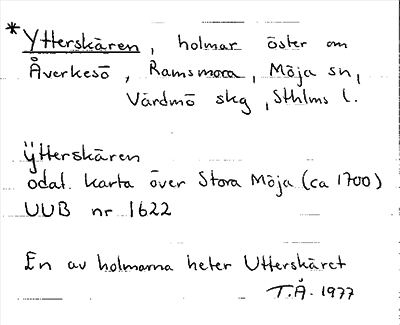 * Ytterskären, holmar öster om
Åverkesö, Ramsmora, Möja sn,
Värdmö skg, Sthlms l.
Ÿtterskären
odat. karta över Stora Möja (ca 1700)
UUB nr 1622
En av holmarna heter Utterskäret
T.Å. 1977